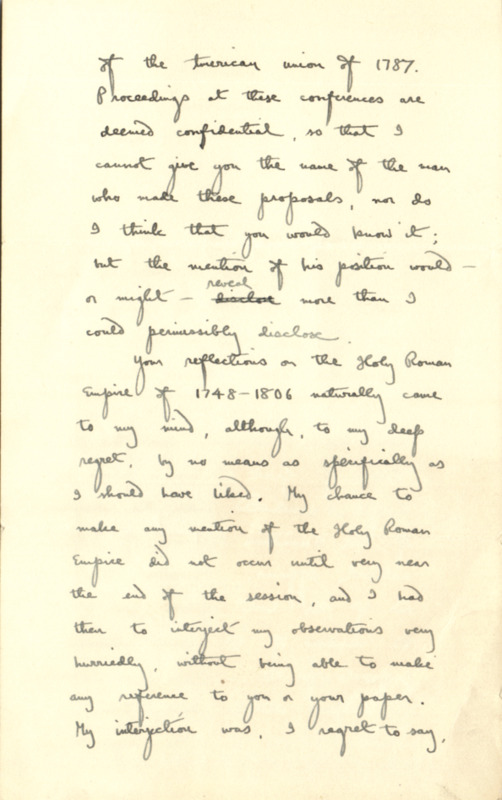 of the American union of 1787.
Proceedings at these conferences are
deemed confidential, so that I
cannot give you the name of the man
who make these proposals, nor do
I think that you would know it;
but the mention of his position would –
reveal
or might – disclose more than I
could permissibly disclose.
Your reflections on the Holy Roman
Empire of 1748-1806 naturally came
to my mind, although, to my deep
regret, by no means as specifically as
I should have liked. My chance to
make any mention of the Holy Roman
Empire did not occur until very near
the end of the session, and I had
then to interject my observations very
hurriedly, without being able to make
any reference to you or your paper.
My interjection was, I regret to say,